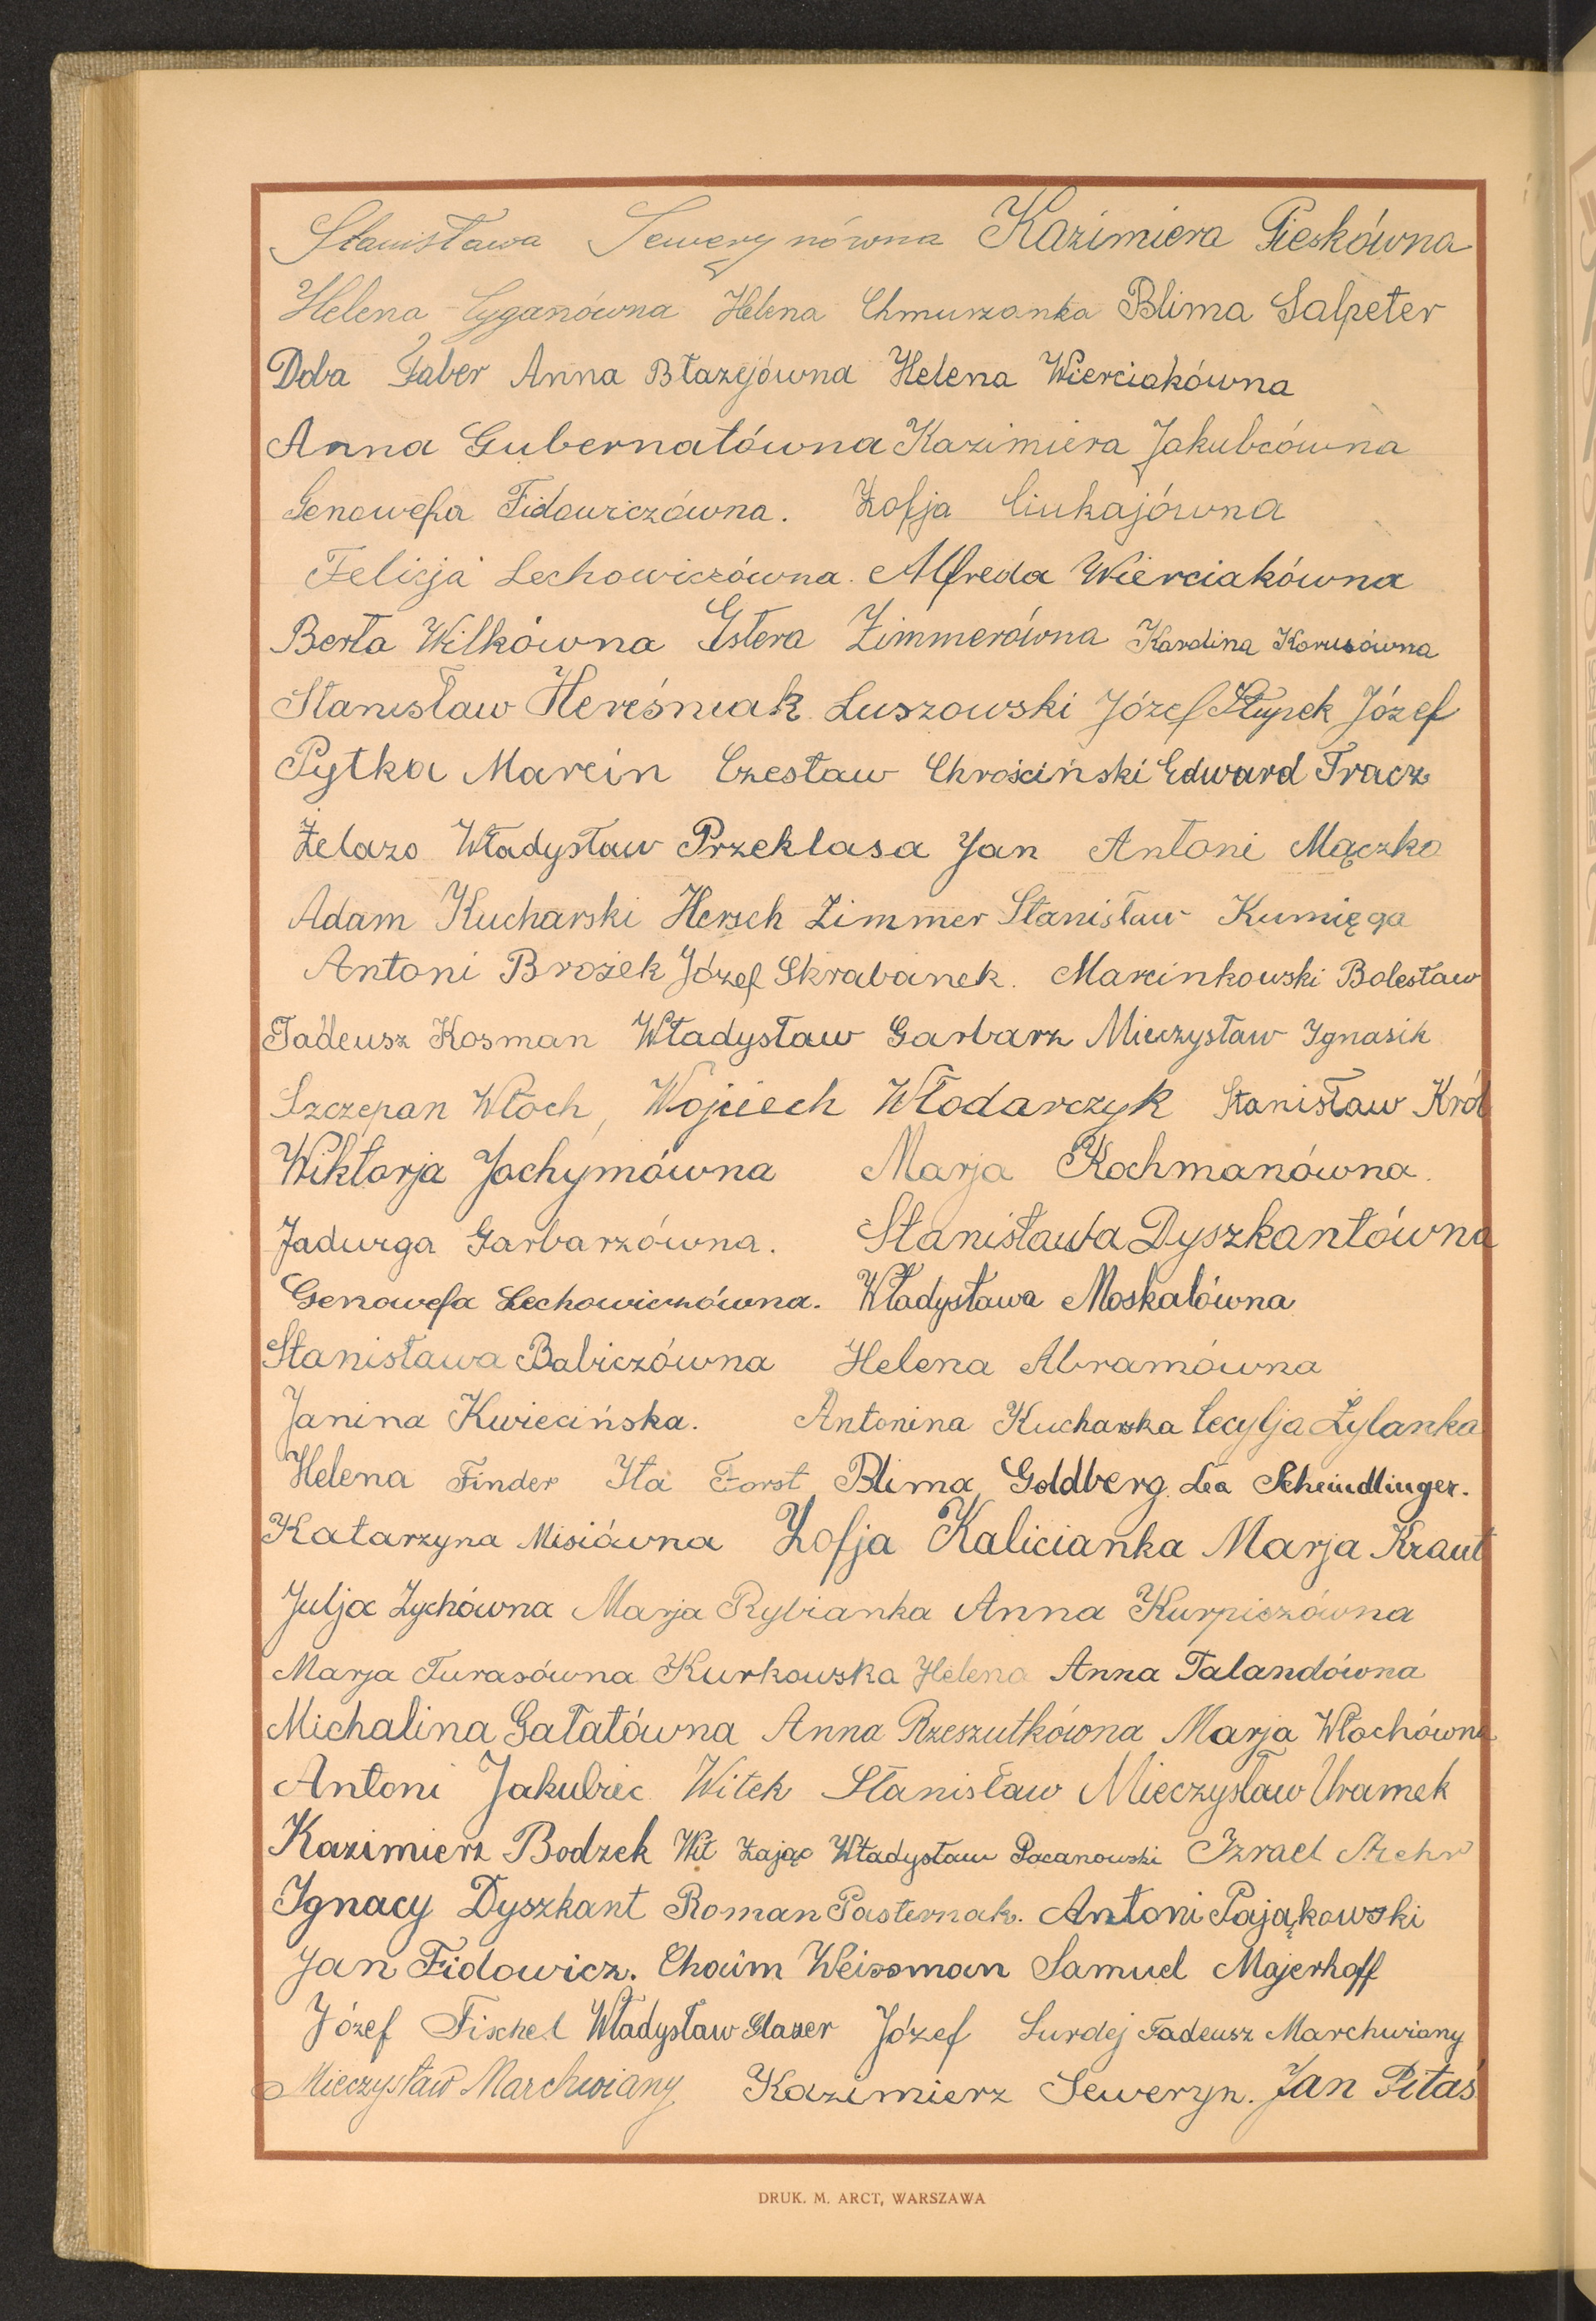 Stanisława Sewerynówna Kazimiera Pieskówna
Helena Cyganówna Helena Chmurzanka Blima Salpeter
Doba Faber Anna Błazejówna Helena Wierciakówna
Anna Gubernatówna Kazimiera Jakubcówna
Genowefa Fidowiczówna. Zofja Ciukajówna
Felicja Lechowiczówna. Alfreda Wierciakówna
Berta Wilkówna Estera Zimmerówna Karolina Korusówna
Stanisław Hereśniak Luszowski Józef Słupek Józef
Pytka Marcin Czesław Chrościński Edward Tracz
Żelazo Władysław Przeklasa Jan Antoni Mączko
Adam Kucharski Hersch Zimmer Stanisław Kumięga
Antoni Brożek Józef Skrabanek. Marcinkowski Bolesław
Tadeusz Kosman Władysław Garbarz Mieczysław Ignasik
Szczepan Włoch, Wojciech Włodarczyk Stanisław Król
Wiktorja Jachymówna Marja Kochmanówna.
Jadwiga Garbarzówna. Stanisława Dyszkantówna
Genowefa Lechowiczówna. Władysława Moskalówna
Stanisława Babiczówna Helena Abramówna
Janina Kwiecińska. Antonina Kucharska Cecylja Żylanka
Helena Finder Ita Forst Blima Goldberg. Lea Scheindlinger.
Katarzyna Misiówna Zofja Kalicianka Marja Kraut
Julja Zychówna Marja Rybianka Anna Kurpiszówna
Marja Turasówna Kurkowska Helena Anna Talandówna
Michalina Gałatówna Anna Rzeszutkówna Marja Włochówna
Antoni Jakubiec Witek Stanisław Mieczysław Uramek
Kazimierz Bodzek Wit Zając Władysław Pacanowski Izrael
Ignacy Dyszkant Roman Pasternak. Antoni Pająkowski
Jan Fidowicz. Chaim Weissman Samuel Majerhoff
Józef Fischel Władysław Glazer Józef Surdej Tadeusz Marchwiany
Mieczysław Marchwiany Kazimierz Seweryn. Jan Pitaś
DRUK. M. ARCT, WARSZAWA